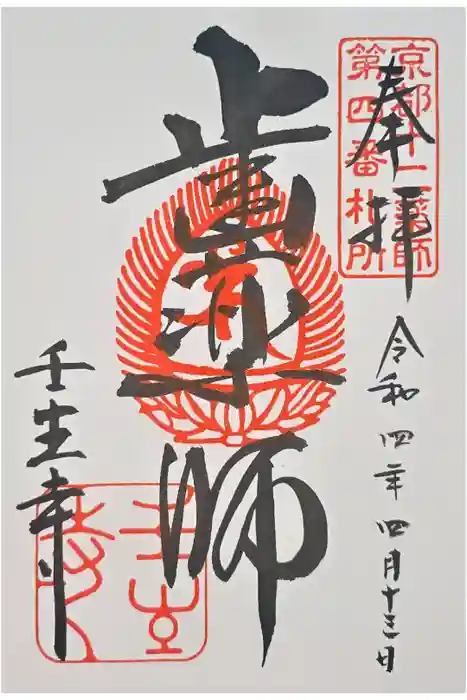 奉拝
京都十二薬師
第四番札所
令和四年四月十三日
歯薬師
壬生寺